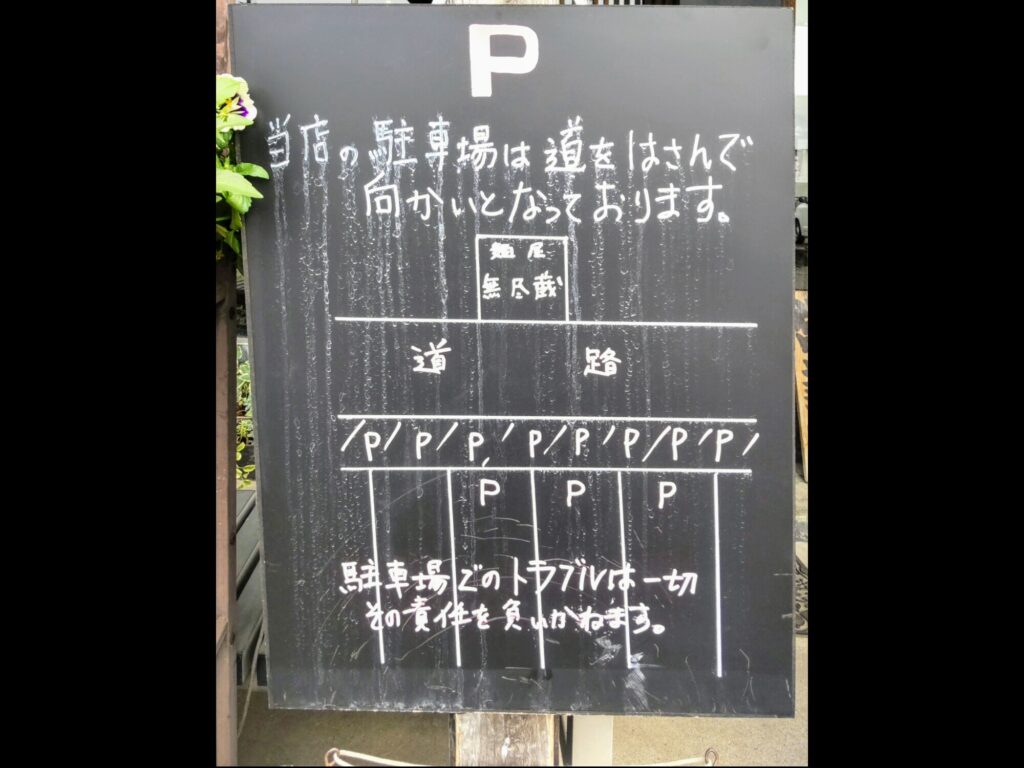 P
当店の駐車場は道をはさんで
向かいとなっております。
麺屋
無尽蔵
道 路
/P/P/P/P/P/P/P/P/
P P P
駐車場でのトラブルは一切
その責任を負いかねます。